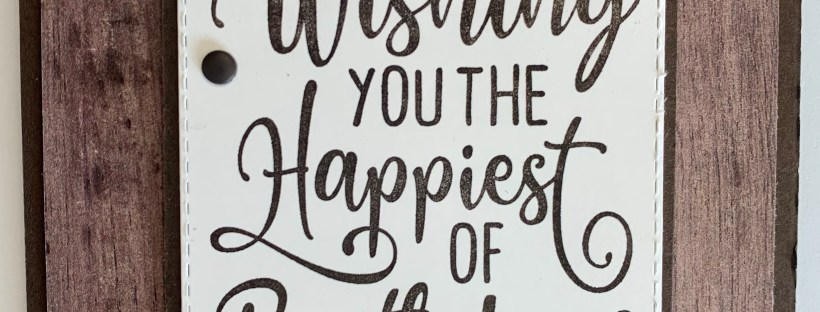 Wishing
YOU THE
Happiest
OF